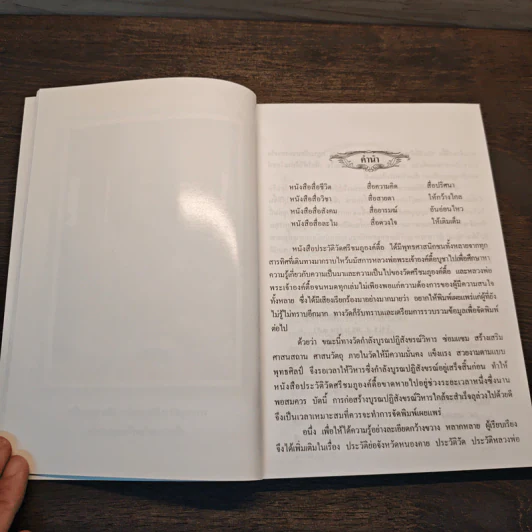 คำนำ
หนังสือสื่อชีวิต สื่อความคิด สื่อปริศนา
หนังสือสื่อวิชา สื่อสายตา ให้กว้างไกล
หนังสือสื่อสังคม สื่ออารมณ์ อันอ่อนไหว
หนังสือสื่อละไม สื่อดวงใจ ให้เติมเต็ม
หนังสือประวัติวัดศรีชมภูองค์ตื้อ ได้มีพุทธศาสนิกชนทั้งหลายจากทุก
สารทิศที่เดินทางมากราบไหว้นมัสการหลวงพ่อพระเจ้าองค์ตื้อบูชาไปเพื่อศึกษาหา
ความรู้เกี่ยวกับความเป็นมาและความเป็นไปของวัดศรีชมภูองค์ตื้อ และหลวงพ่อ
พระเจ้าองค์ตื้อจนหมดทุกเล่มไม่เพียงพอแก่ความต้องการของผู้มีความสนใจ
ทั้งหลาย ซึ่งได้มีเสียงเรียกร้องมาอย่างมากมายว่า อยากให้พิมพ์เผยแพร่แก่ผู้ที่ยัง
ไม่รู้ไม่ทราบอีกมาก ทางวัดก็รับทราบและเตรียมการรวบรวมข้อมูลเพื่อจัดพิมพ์
ต่อไป
ด้วยว่า ขณะนี้ทางวัดกำลังบูรณปฏิสังขรณ์วิหาร ซ่อมแซม สร้างเสริม
ศาสนสถาน ศาสนวัตถุ ภายในวัดให้มีความมั่นคง แข็งแรง สวยงามตามแบบ
พุทธศิลป์ จึงรอเวลาให้วิหารซึ่งกำลังบูรณปฏิสังขรณ์อยู่เสร็จสิ้นก่อน ทำให้
หนังสือประวัติวัดศรีชมภูองค์ตื้อขาดหายไปอยู่ช่วงระยะเวลาหนึ่งซึ่งนาน
พอสมควร บัดนี้ การก่อสร้างบูรณปฏิสังขรณ์วิหารใกล้จะสำเร็จลุล่วงไปด้วยดี
จึงเป็นเวลาเหมาะสมที่ควรจะทำการจัดพิมพ์เผยแพร่
อนึ่ง เพื่อให้ได้ความรู้อย่างละเอียดกว้างขวาง หลากหลาย ผู้เรียบเรียง
จึงได้เพิ่มเติมในเรื่อง ประวัติย่อจังหวัดหนองคาย ประวัติวัด ประวัติหลวงพ่อ